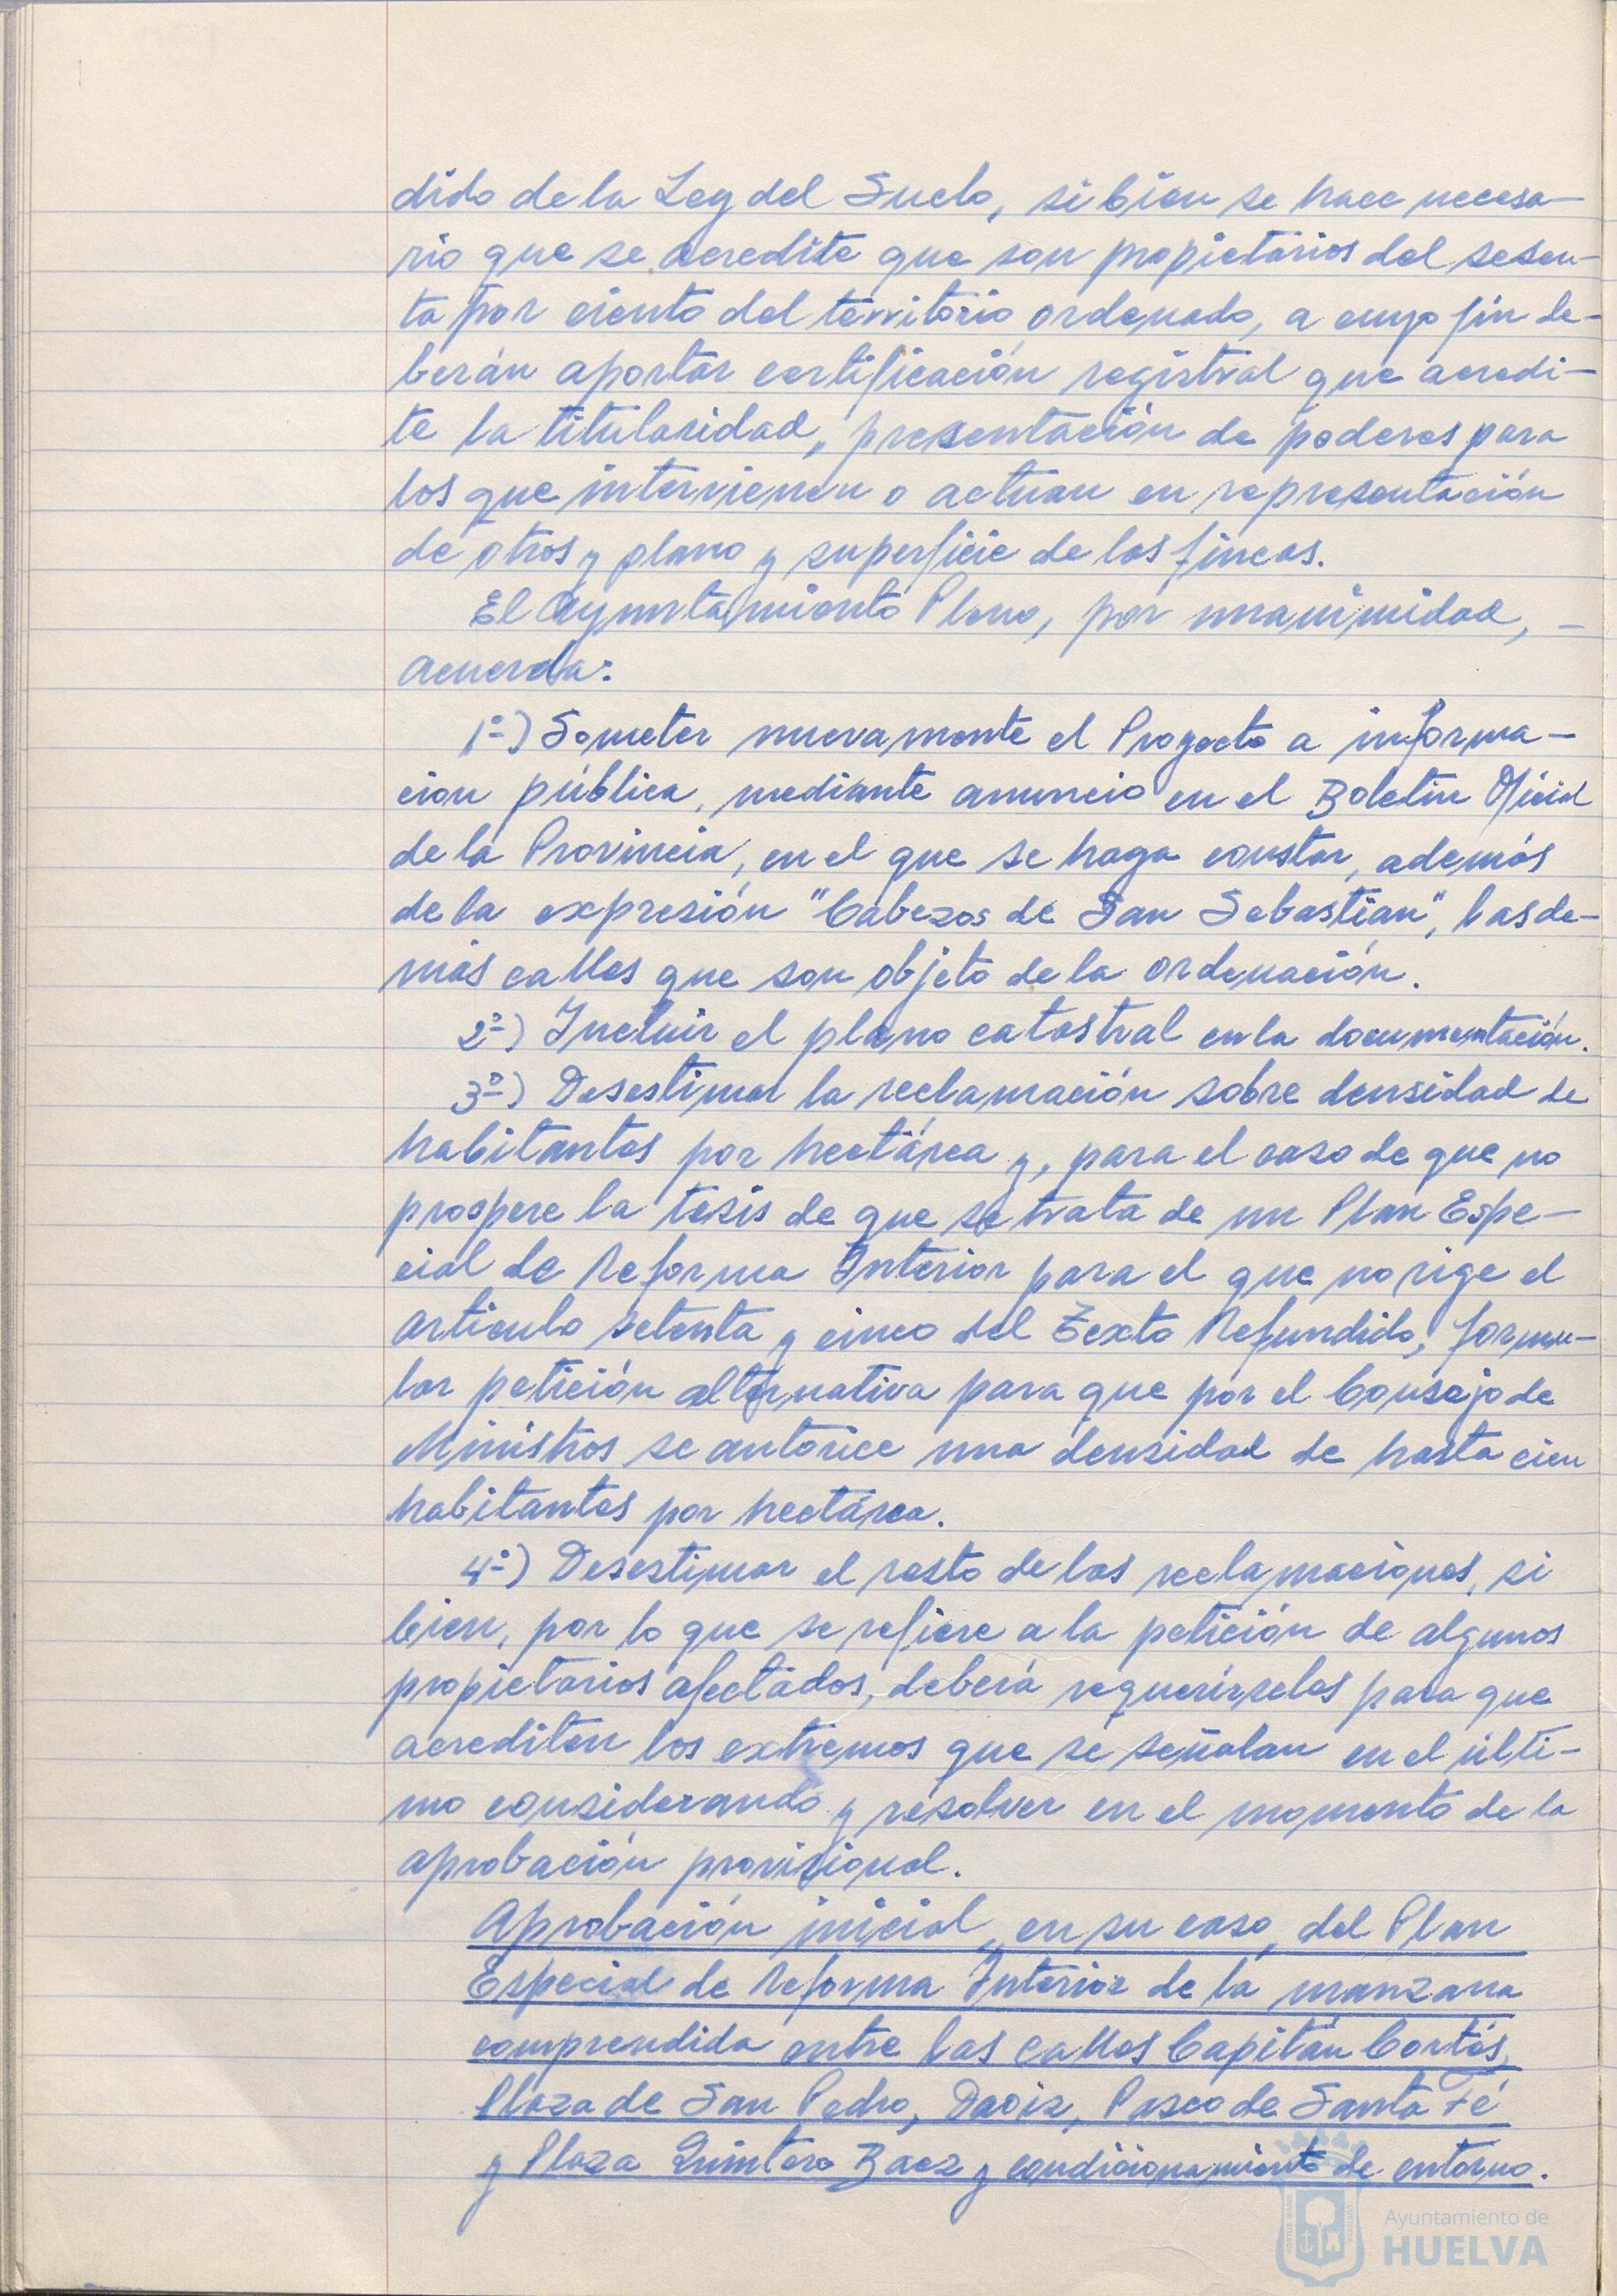 dido de la Ley del Suelo, si bien se hace necesa-
rio que se acredite que son propietarios del sesen-
ta por ciento del territorio ordenado, a cuyo fin de-
berán aportar certificación registral que acredi-
te la titularidad, presentación de poderes para
los que intervienen o actúan en representación
de otros y plano y superficie de las fincas.
El Ayuntamiento Pleno, por unanimidad, -
acuerda:
1º) Someter nuevamente el Proyecto a informa-
cion pública, mediante anuncio en el Boletin Oficial
de la Provincia, en el que se haga constar, además
de la expresión "Cabezos de San Sebastian", las de-
más calles que son objeto de la ordenación.
2º) Incluir el plano catastral en la documentación.
3º) Desestimar la reclamación sobre densidad de
habitantes por hectárea y, para el caso de que no
prospere la tesis de que se trata de un Plan Espe-
cial de Reforma Interior para el que no rige el
articulo setenta y cinco del Texto Refundido, formu-
lar petición alternativa para que por el Consejo de
Ministros se autorice una densidad de hasta cien
habitantes por hectárea.
4º) Desestimar el resto de las reclamaciones, si
bien, por lo que se refiere a la petición de algunos
propietarios afectados, deberá requerírseles para que
acrediten los extremos que se señalan en el últi-
mo considerando y resolver en el momento de la
aprobación provisional.
Aprobación inicial, en su caso, del Plan
Especial de Reforma Interior de la manzana
comprendida entre las calles Capitán Cortés,
Plaza de San Pedro, Daoiz, Paseo de Santa Fé
y Plaza Quintero Baez y condicionamiento de entorno.
Ayuntamiento de
HUELVA